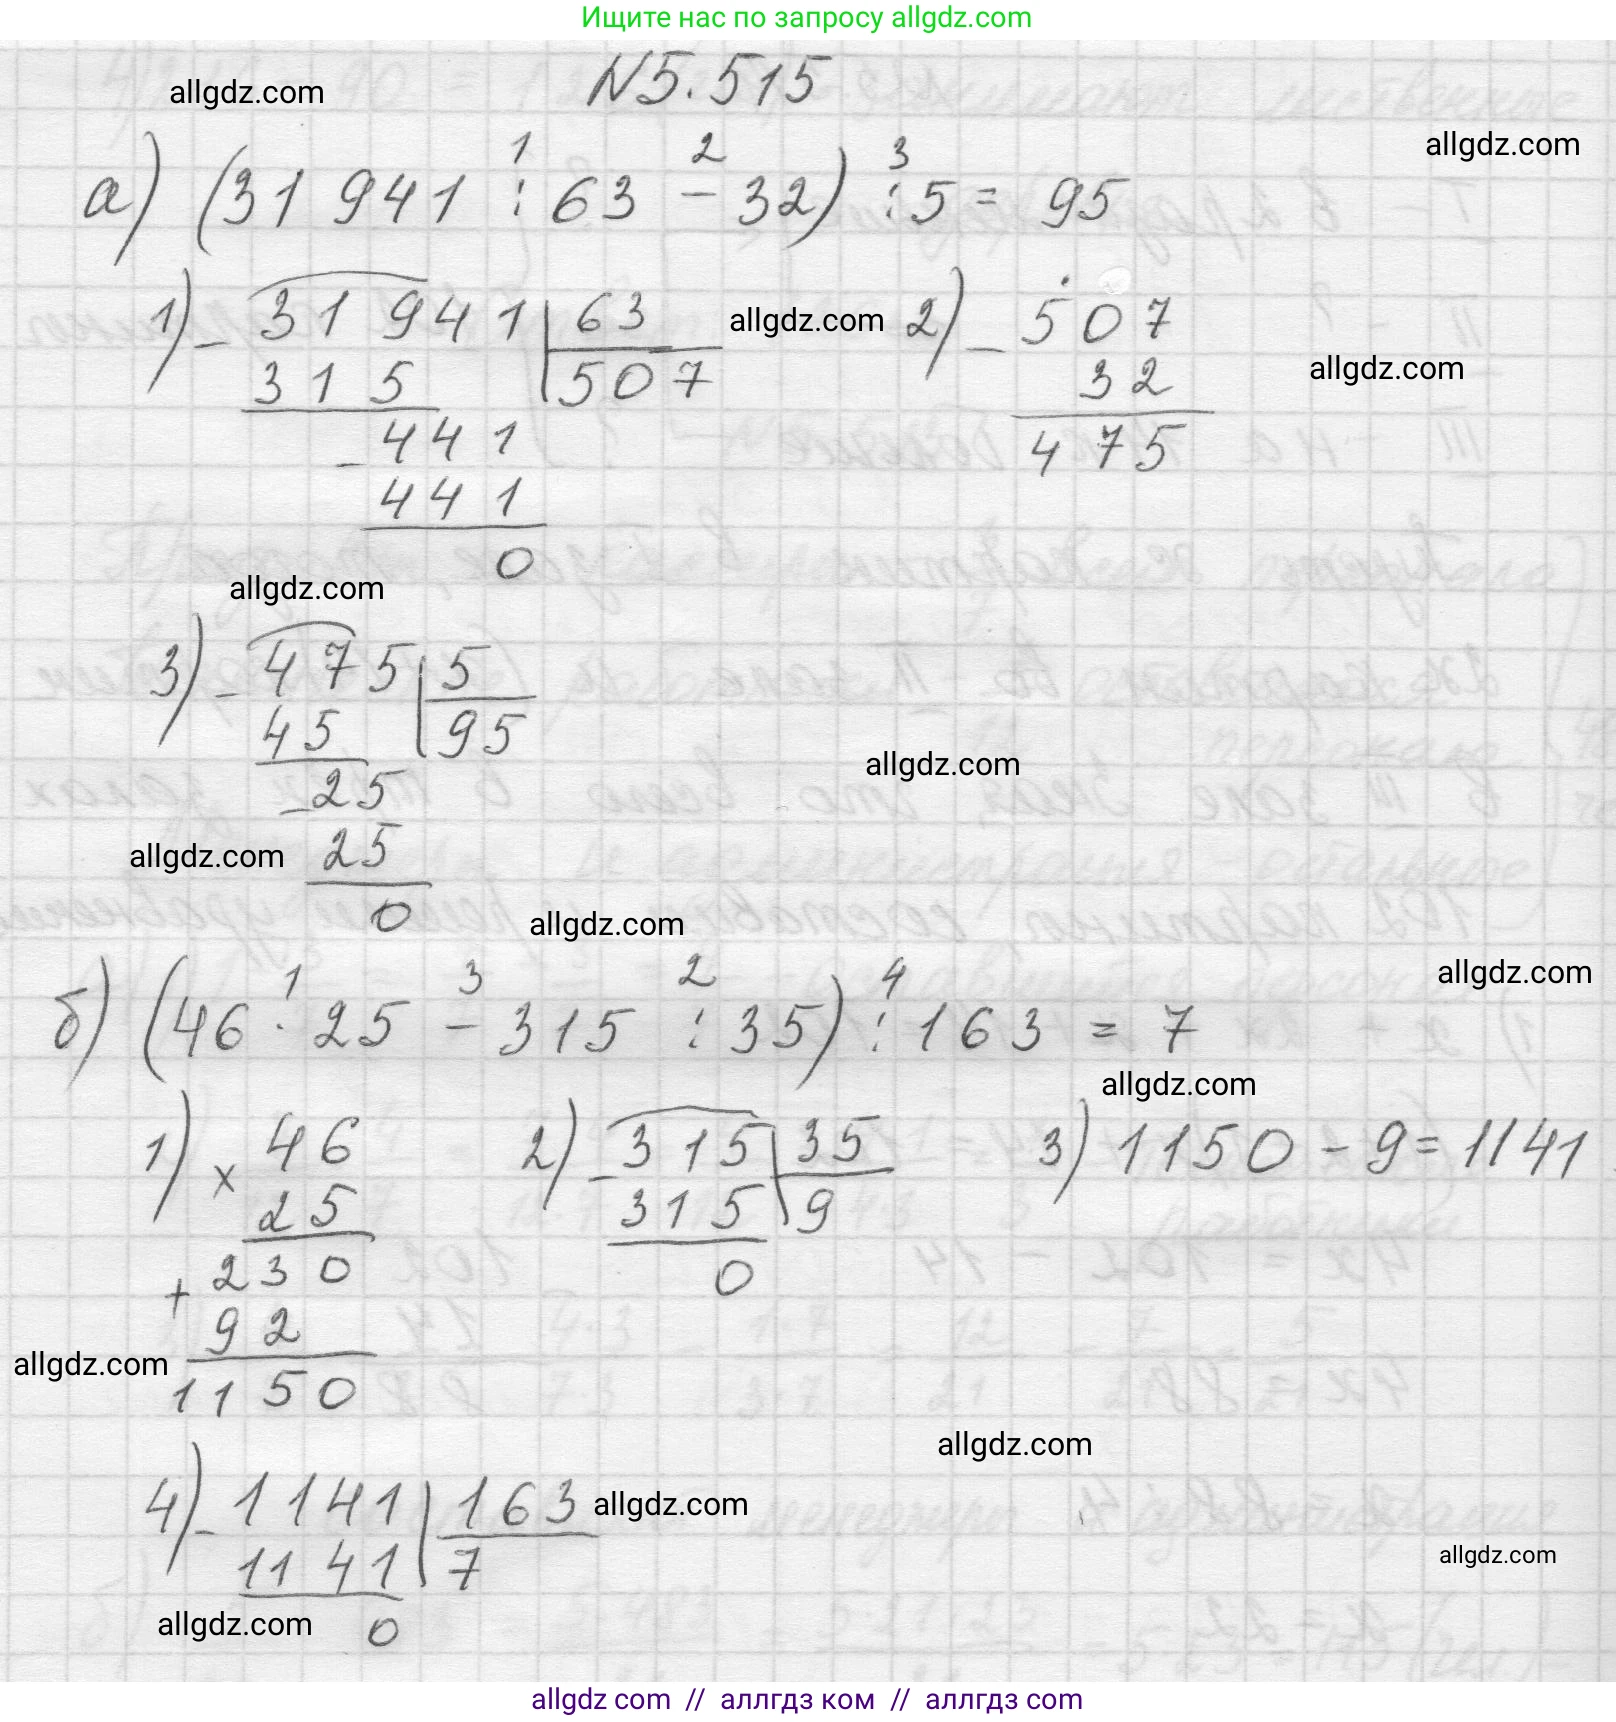 Ищите нас по запросу allgdz.com
N5.515
allgdz.com
allgdz.com
1 2 3
а) (31 941 : 63 - 32) : 5 = 95
1) - 31 941 | 63
315 | 507
- 441
441
0
allgdz.com
2) - 507
32
475
allgdz.com
allgdz.com
3) - 475 | 5
45 | 95
- 25
25
0
allgdz.com
allgdz.com
allgdz.com
allgdz.com
1 3 2 4
б) (46 · 25 - 315 : 35) : 163 = 7
allgdz.com
1) x 46
25
+ 230
92
1150
2) - 315 | 35
315 | 9
0
3) 1150 - 9 = 1141
allgdz.com
allgdz.com
4) - 1141 | 163
1141 | 7
0
allgdz.com
allgdz.com
allgdz.com
allgdz.com // аллгдз ком // аллгдз com